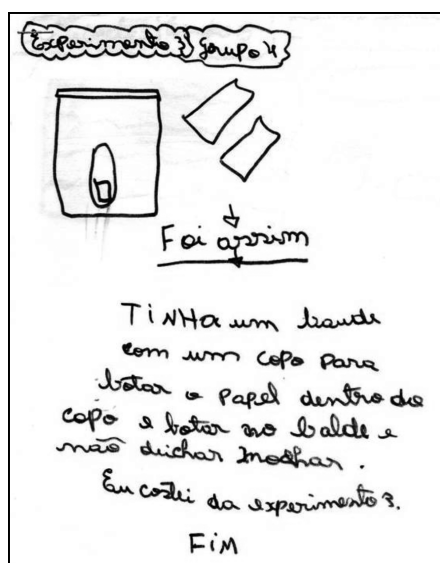 Experimento 3 Grupo 4
Foi assim
TiNHa um baude
com um copo para
botar o papel dentro do
copo e botar no balde e
não deichar molhar.
Eu costei da experimento 3.
FiM